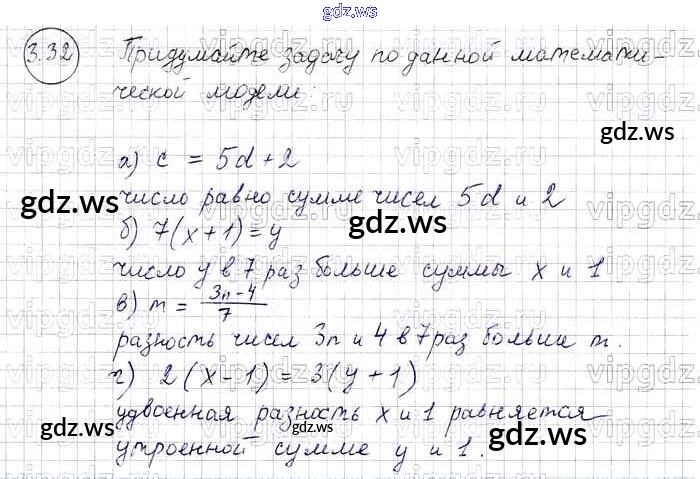 gdz.ws
3.32 Придумайте задачу по данной математи-
ческой модели:
gdz.ws
а) c = 5d+2
число равно сумме чисел 5d и 2
gdz.ws gdz.ws
б) 7(x+1)=y
число y в 7 раз больше суммы x и 1
в) m = (3n-4)/7
разность чисел 3n и 4 в 7 раз больше m.
г) 2(x-1)=3(y+1)
удвоенная разность x и 1 равняется
gdz.ws gdz.ws
утроенной сумме y и 1.